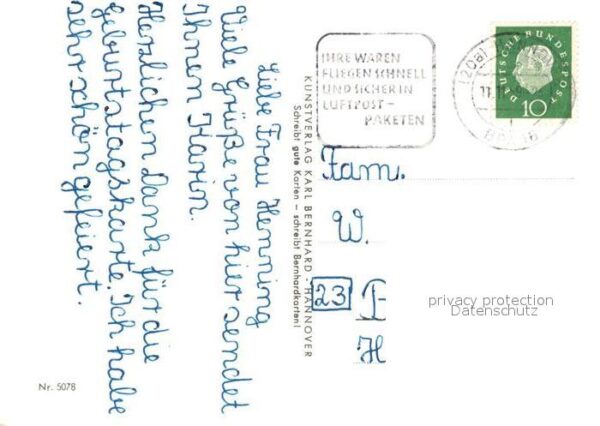 Liebe Frau Henning
Viele Grüße von hier sendet
Ihnen Karin.
Herzlichen Dank für die
Geburtstagskarte. Ich habe
sehr schön gefeiert.
Nr. 5078
KUNSTVERLAG KARL BERNHARD - HANNOVER
Schreibt gute Karten – schreibt Bernhardkarten!
IHRE WAREN
FLIEGEN SCHNELL
UND SICHER IN
LUFTPOST-
PAKETEN
DEUTSCHE BUNDESPOST
10
Fam.
W.
23
H
privacy protection
Datenschutz